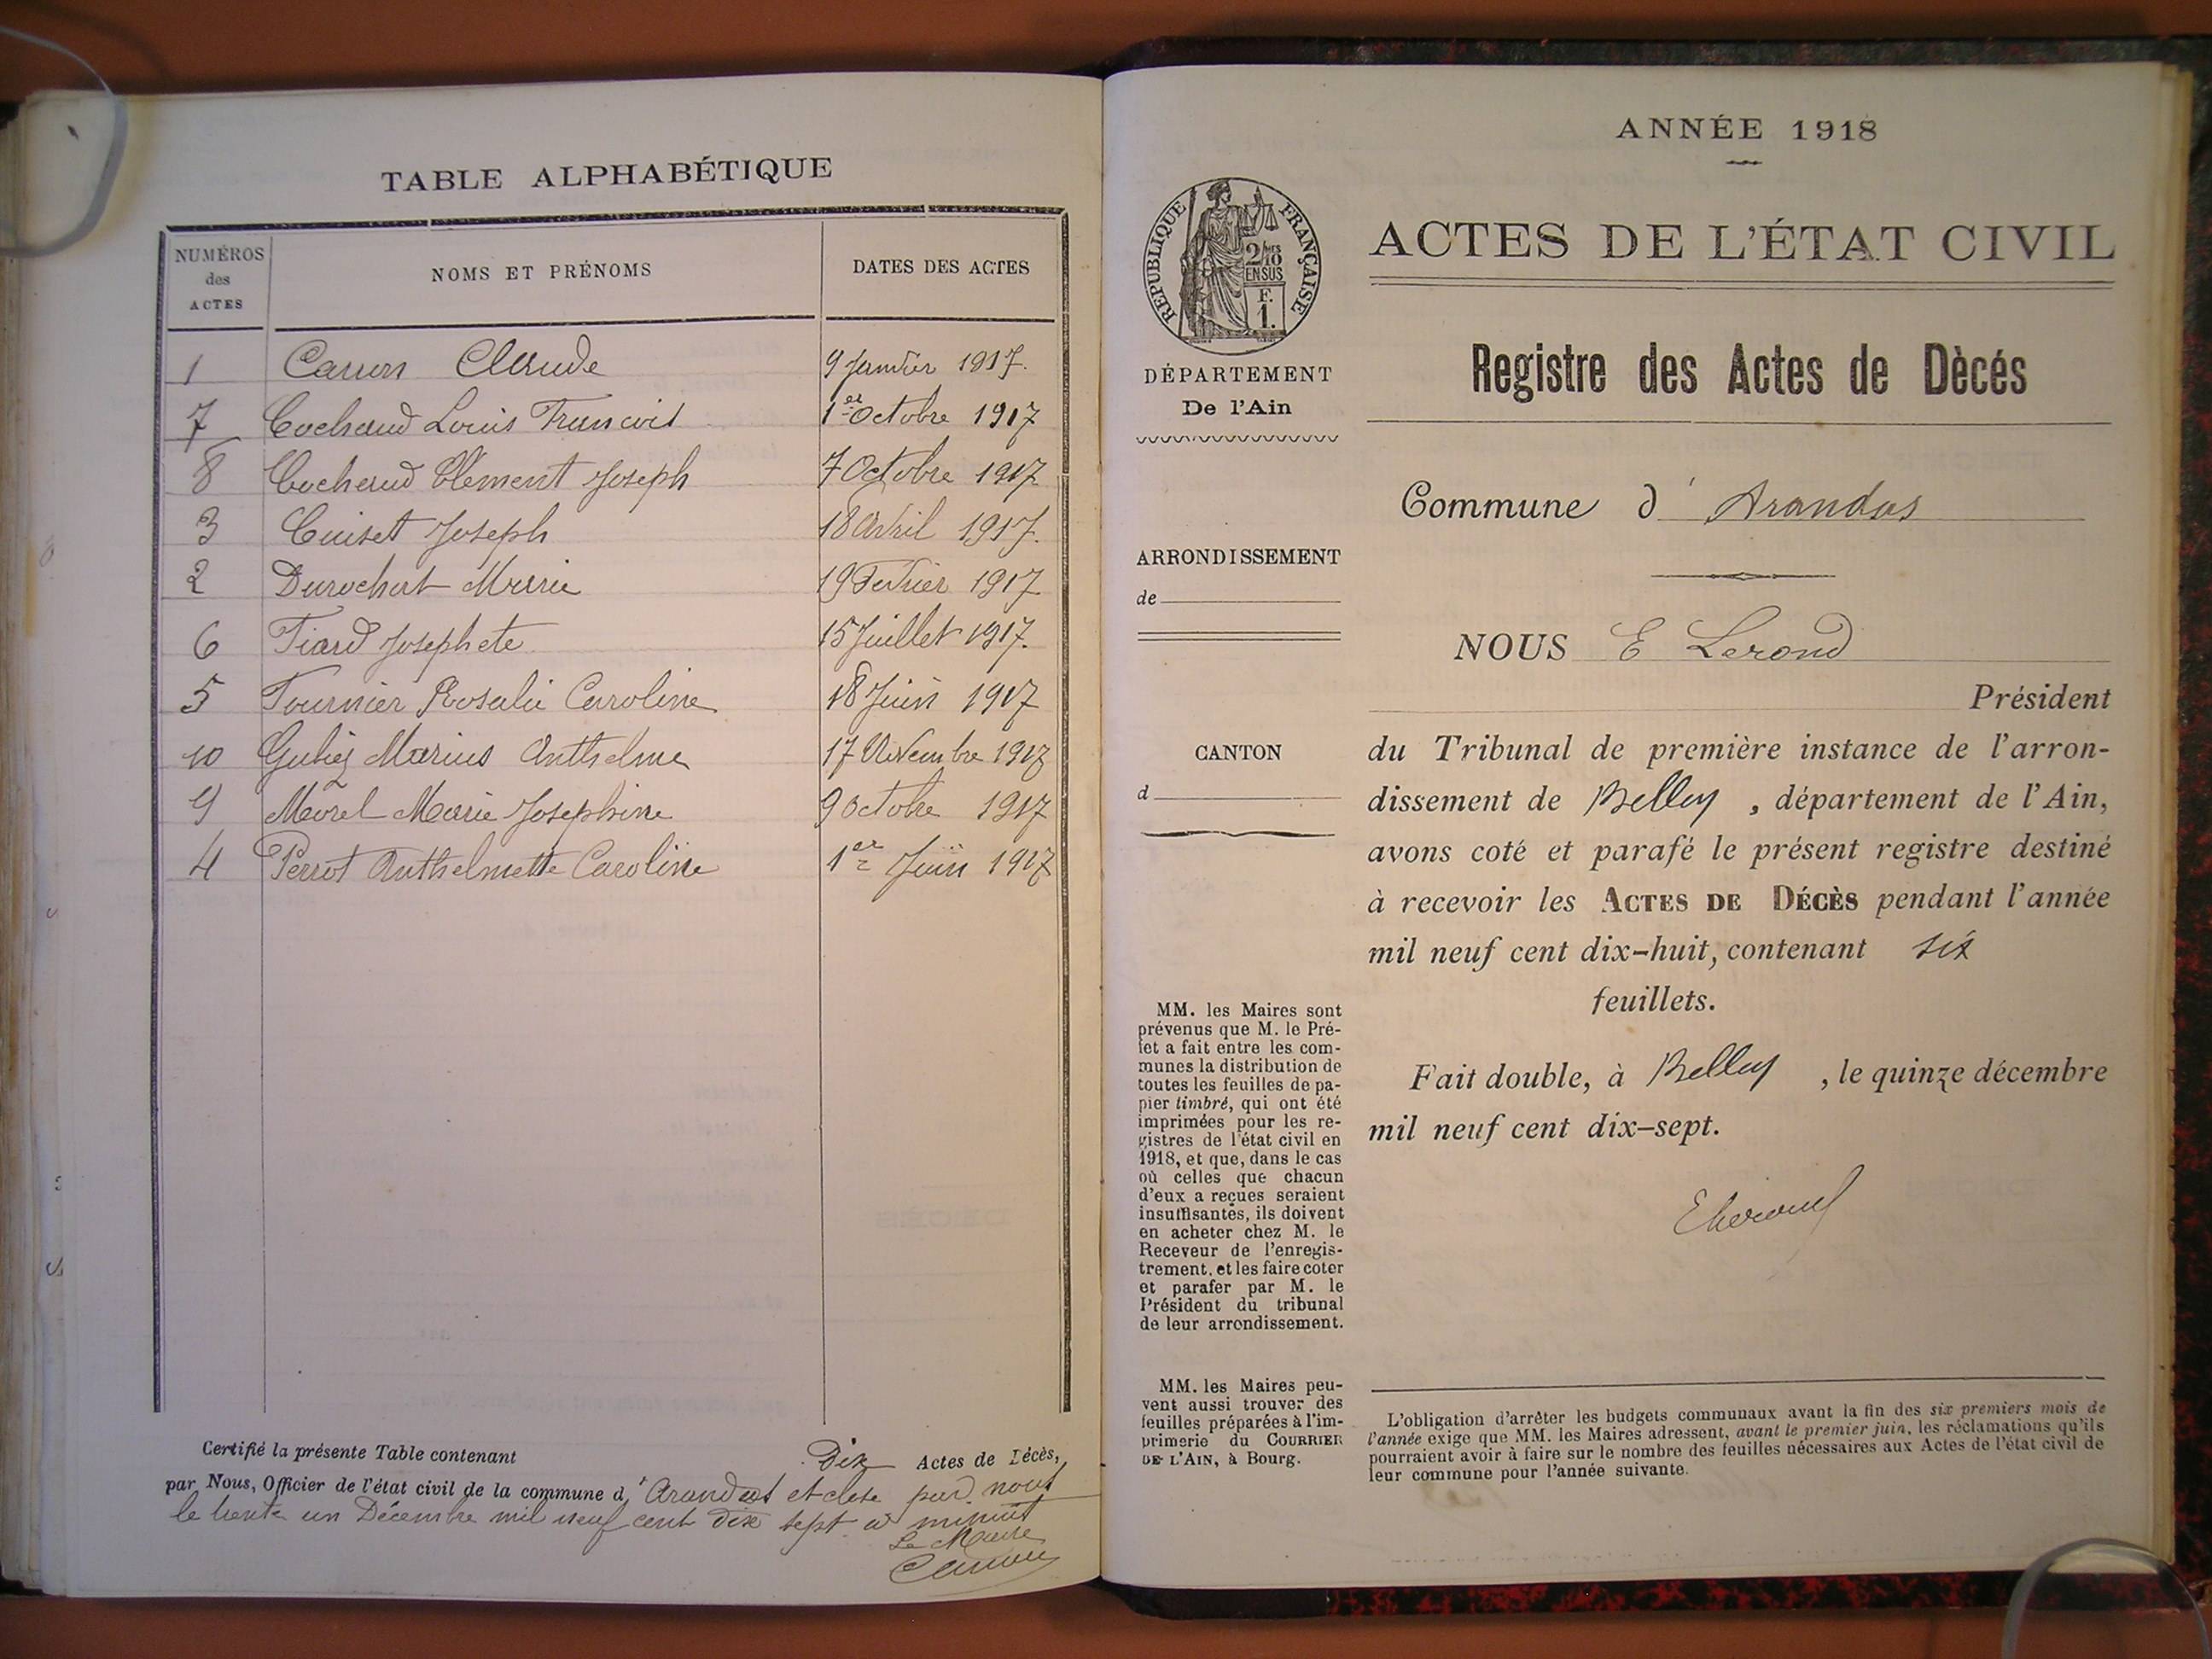 TABLE ALPHABÉTIQUE
NUMÉROS des ACTES
NOMS ET PRÉNOMS
DATES DES ACTES
1 Carron Claude 9 Janvier 1917.
7 Cochaud Louis Francois 1er Octobre 1917
8 Cochaud Clément Joseph 7 Octobre 1917
3 Cuiset Joseph 18 Avril 1917.
2 Durochat Marie 19 Fevrier 1917
6 Tiard Josephete 15 Juillet 1917.
5 Fournier Rosalie Caroline 18 Juin 1917
10 Marius Anthelme 17 Novembre 1917
9 Morel Marie Josephine 9 Octobre 1917
4 Perrot Anthelmette Caroline 1er Juin 1917
Certifié la présente Table contenant Dix Actes de Décès,
par Nous, Officier de l'état civil de la commune d'Arandas et close par nous
le trente un Décembre mil neuf cent dix sept a minuit
Le Maire
Carron
ANNÉE 1918
RÉPUBLIQUE FRANÇAISE
2/10 MES
EN SUS
F.
1.
DÉPARTEMENT
De l'Ain
ARRONDISSEMENT
de
CANTON
d
MM. les Maires sont
prévenus que M. le Pré-
fet a fait entre les com-
munes la distribution de
toutes les feuilles de pa-
pier timbré, qui ont été
imprimées pour les re-
gistres de l'état civil en
1918, et que, dans le cas
où celles que chacun
d'eux a reçues seraient
insuffisantes, ils doivent
en acheter chez M. le
Receveur de l'enregis-
trement, et les faire coter
et parafer par M. le
Président du tribunal
de leur arrondissement.
MM. les Maires peu-
vent aussi trouver des
feuilles préparées à l'im-
primerie du COURRIER
DE L'AIN, à Bourg.
ACTES DE L'ÉTAT CIVIL
Registre des Actes de Dècés
Commune d' Arandas
NOUS E Lerond
Président
du Tribunal de première instance de l'arron-
dissement de Belley, département de l'Ain,
avons coté et parafé le présent registre destiné
à recevoir les ACTES DE DÉCÈS pendant l'année
mil neuf cent dix-huit, contenant six
feuillets.
Fait double, à Belley, le quinze décembre
mil neuf cent dix-sept.
E Lerond
L'obligation d'arrêter les budgets communaux avant la fin des six premiers mois de
l'année exige que MM. les Maires adressent, avant le premier juin, les réclamations qu'ils
pourraient avoir à faire sur le nombre des feuilles nécessaires aux Actes de l'état civil de
leur commune pour l'année suivante.